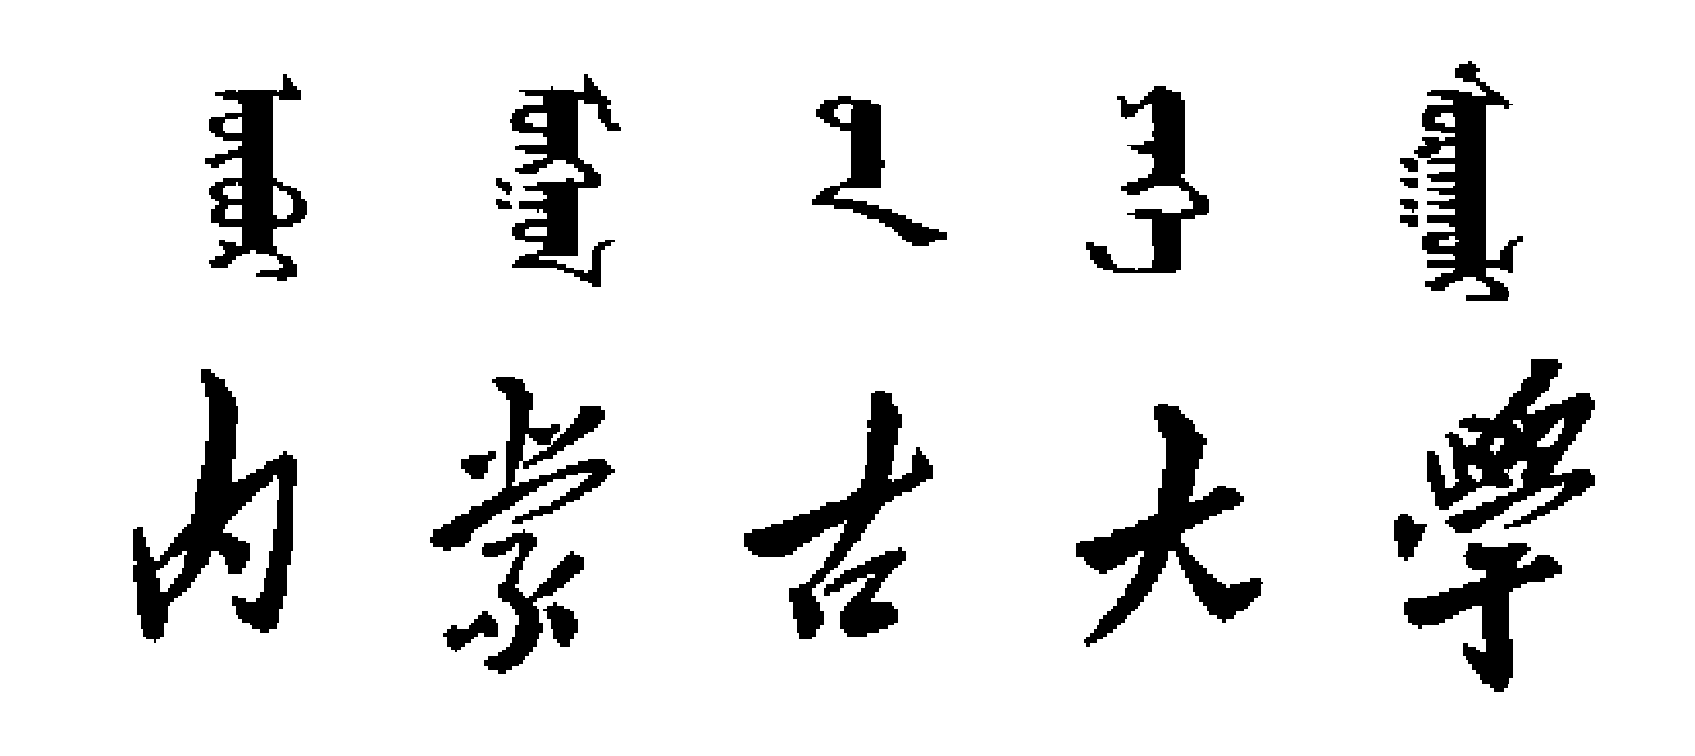 ᠥᠪᠥᠷ ᠮᠣᠩᠭᠣᠯ ᠤᠨ ᠶᠡᠬᠡ ᠰᠤᠷᠭᠠᠭᠤᠯᠢ
内蒙古大學